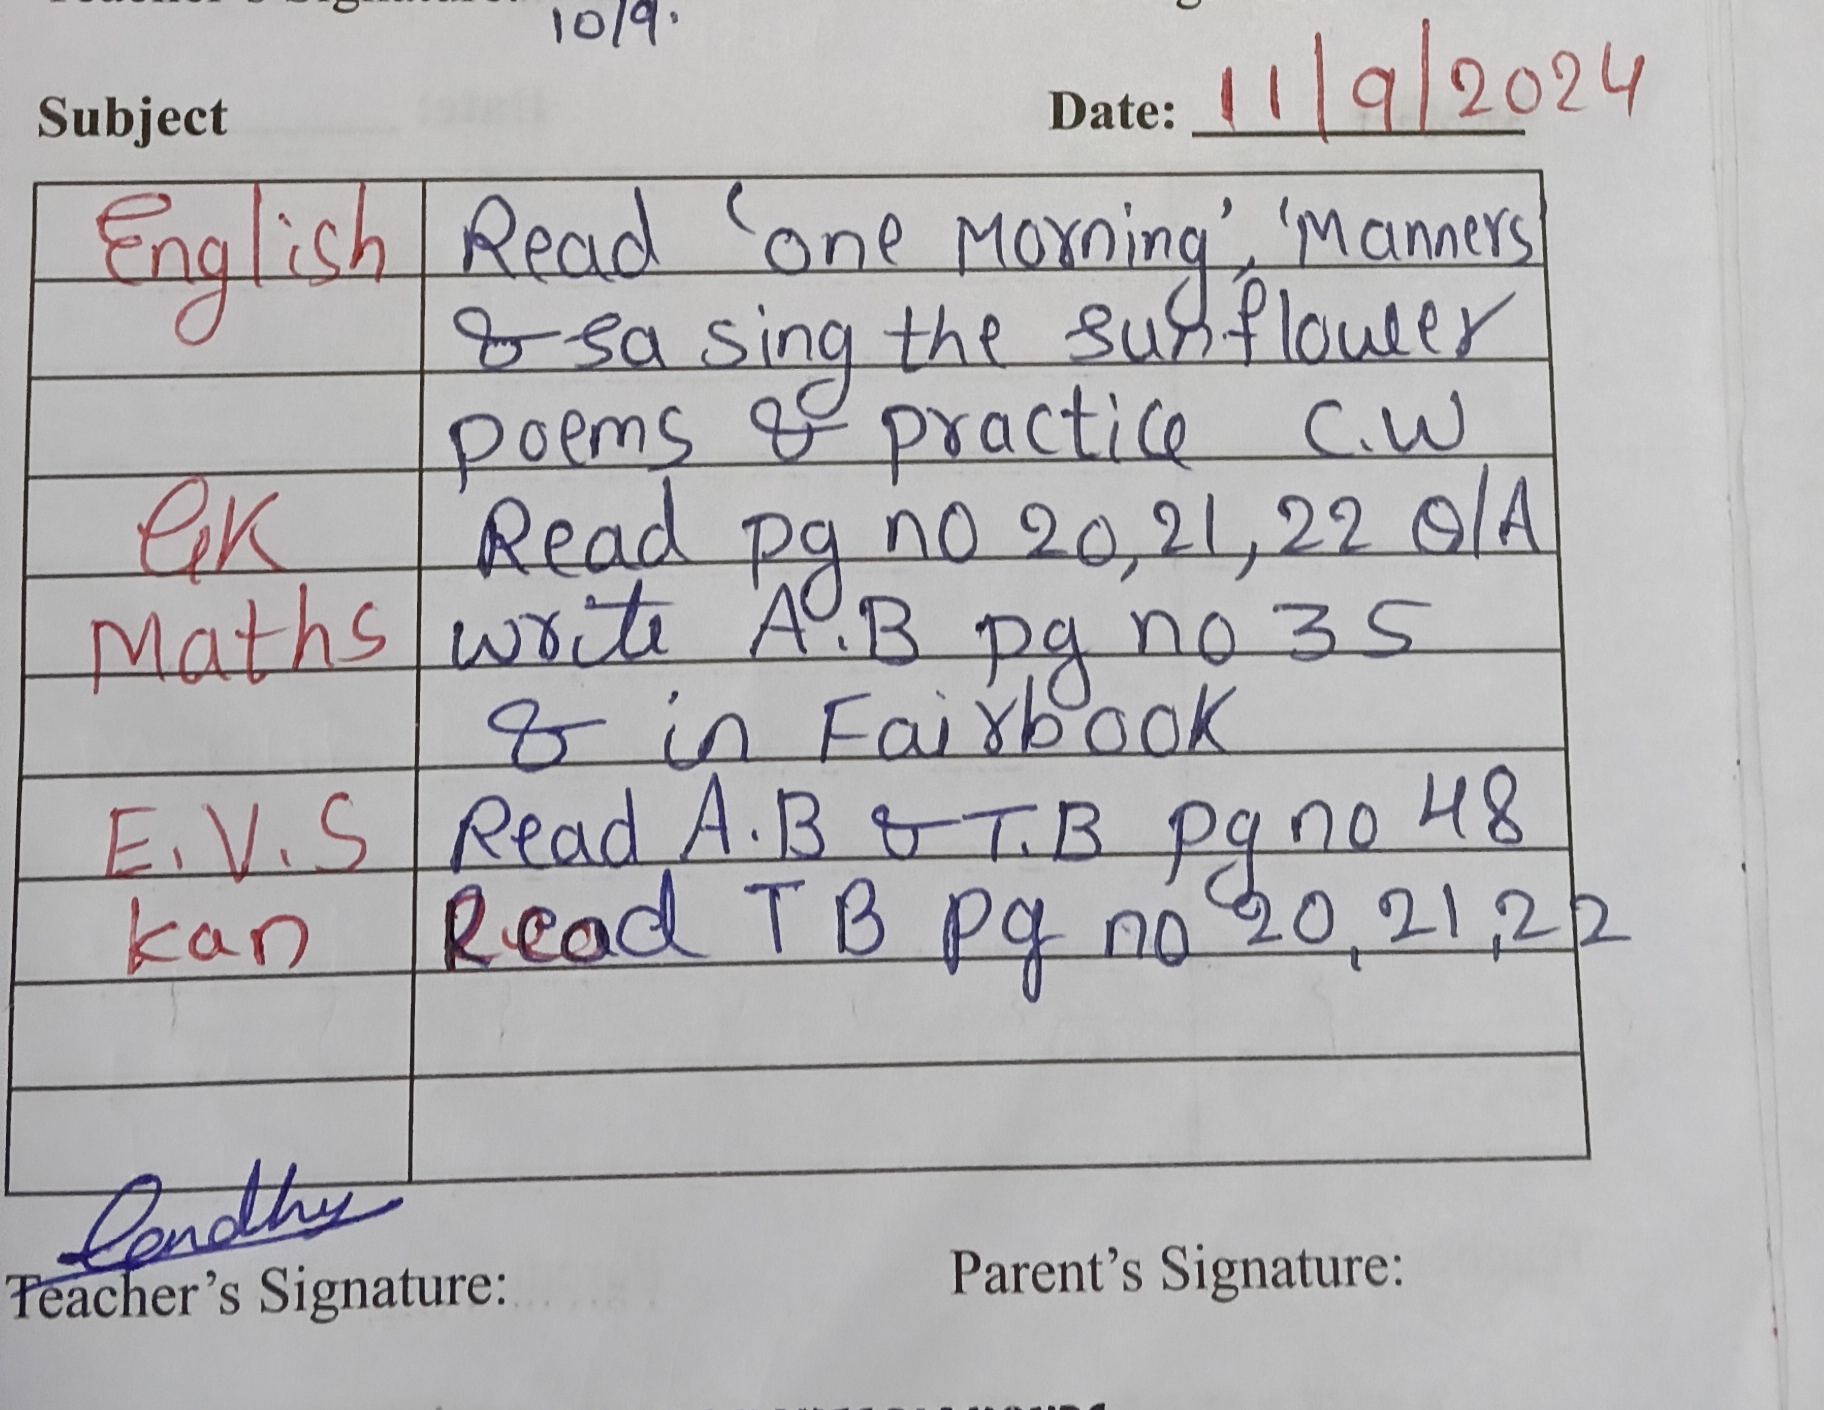 10/9.
Subject Date: 11/9/2024
English Read 'one Morning', 'Manners
& sa sing the sunflower
poems & practice C.W
GK Read pg no 20,21,22 Q/A
Maths write A.B pg no 35
& in Fairbook
E.V.S Read A.B & T.B pg no 48
Kan Read TB pg no 20,21,22
Teacher's Signature: Parent's Signature: